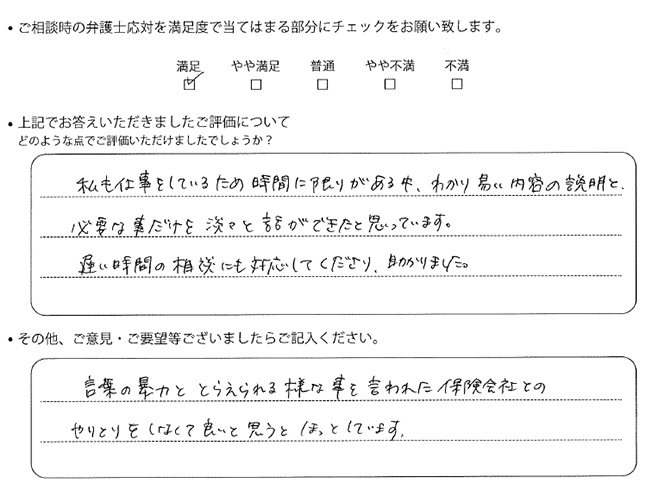 ・ご相談時の弁護士応対を満足度で当てはまる部分にチェックをお願い致します。
満足 やや満足 普通 やや不満 不満
☑ □ □ □ □
・上記でお答えいただきましたご評価について
どのような点でご評価いただけましたでしょうか?
私も仕事をしているため時間に限りがある中、わかり易い内容の説明と、
必要な事だけを淡々と話ができたと思っています。
遅い時間の相談にも対応してくださり、助かりました。
・その他、ご意見・ご要望等ございましたらご記入ください。
言葉の暴力ととらえられる様な事を言われた保険会社との
やりとりをしなくて良いと思うとほっとしています。